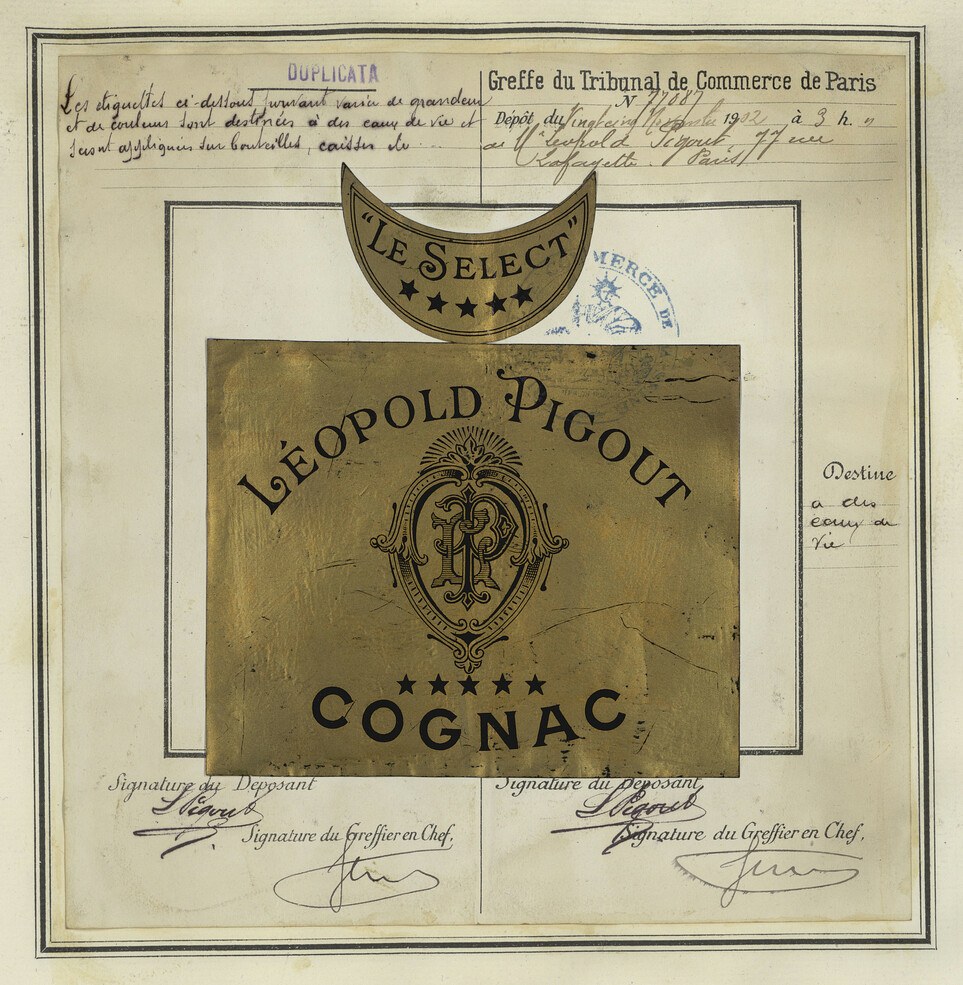 DUPLICATA
Les étiquettes ci-dessous pouvant varier de grandeur
et de couleurs sont destinées à des eaux de vie et
seront appliquées sur bouteilles, caisses etc...
Greffe du Tribunal de Commerce de Paris
N° 77087
Dépôt du Vingt cinq Novembre 1902 à 3 h. "
de Mr Léopold Pigout 77 rue
Lafayette. Paris
"LE SELECT"
MERCE DE
LÉOPOLD PIGOUT
LP
COGNAC
Destiné
a des
eaux de
vie
Signature du Déposant
L Pigout
Signature du Greffier en Chef,
Signature du Déposant
L Pigout
Signature du Greffier en Chef,